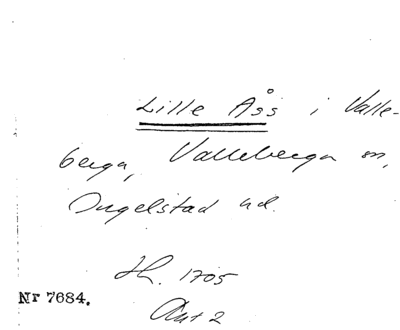 Lille Åss i Valle-
berga, Valleberga sn,
Ingelstad hd.
Jb. 1705
Nr 7684.
Ant 2